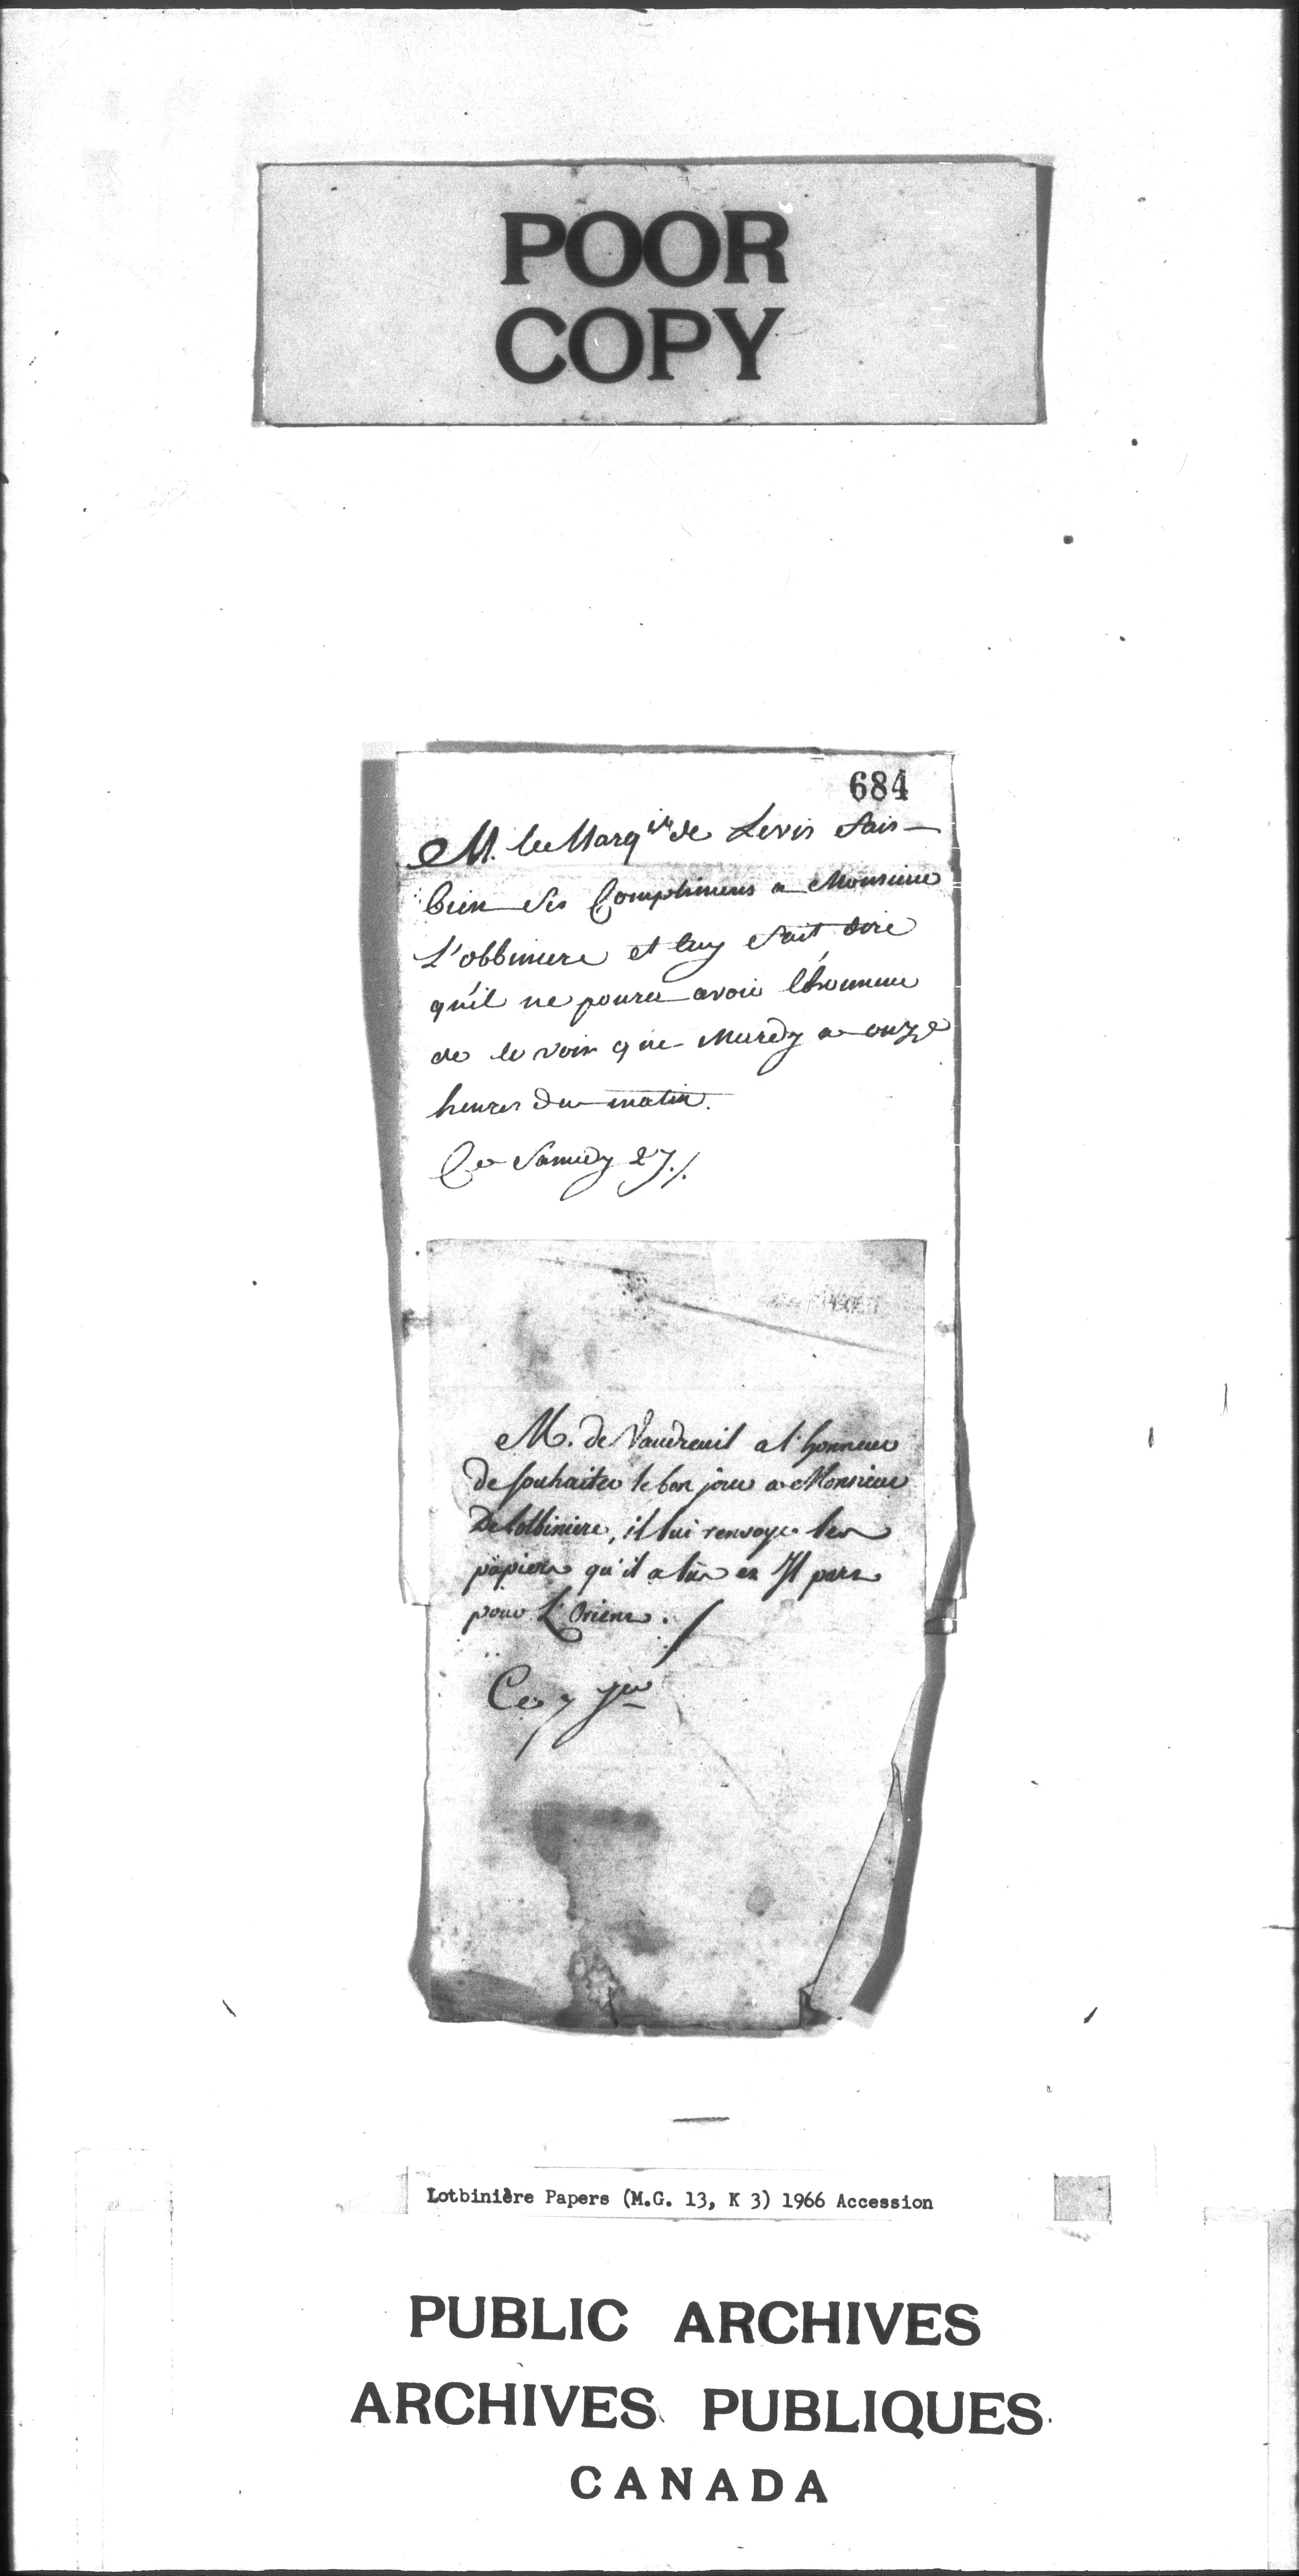 POOR
COPY
684
M. le Marq.is de Levis fais
bien ses Complimens a Monsieur
L'obbiniere et luy fait dire
qu'il ne poura avoir l'honneur
de le voir que Mardy a onze
heures du matin.
Ce Samedy 27./.
M. de Vaudreuil a l'honneur
de souhaiter le bon jour a Monsieur
Delotbiniere, il lui renvoye les
papiers qu'il a lüs et Il pars
pour L'Orient. /
Ce 7
Lotbinière Papers (M.G. 13, K 3) 1966 Accession
PUBLIC ARCHIVES
ARCHIVES PUBLIQUES
CANADA